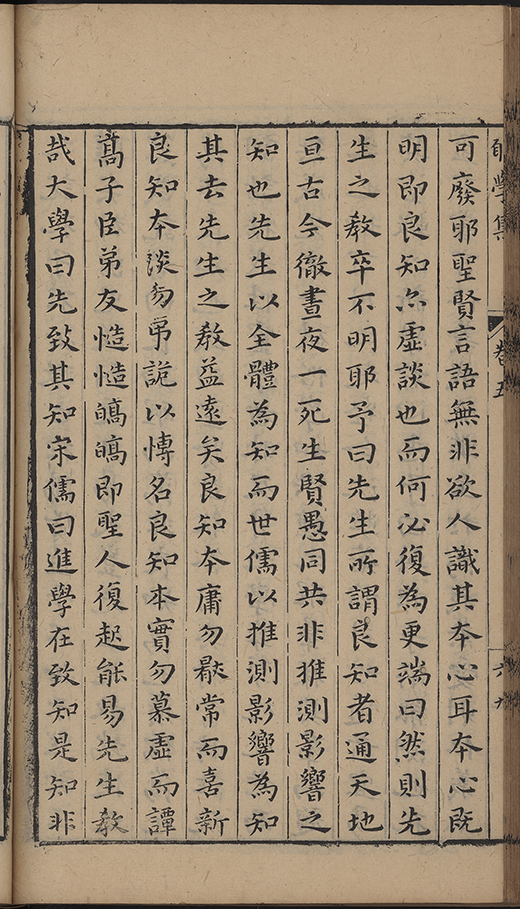 學集
卷五
可廢耶聖賢言語無非欲人識其本心耳本心既
明即良知亦虛談也而何必復為更端曰然則先
生之教卒不明耶予曰先生所謂良知者通天地
亘古今徹晝夜一死生賢愚同共非推測影響之
知也先生以全體為知而世儒以推測影響為知
其去先生之教益遠矣良知本庸勿厭常而喜新
良知本淡勿帋說以愽名良知本實勿慕虛而譚
髙子臣弟友慥慥皜皜即聖人復起能易先生教
哉大學曰先致其知宋儒曰進學在致知是知非